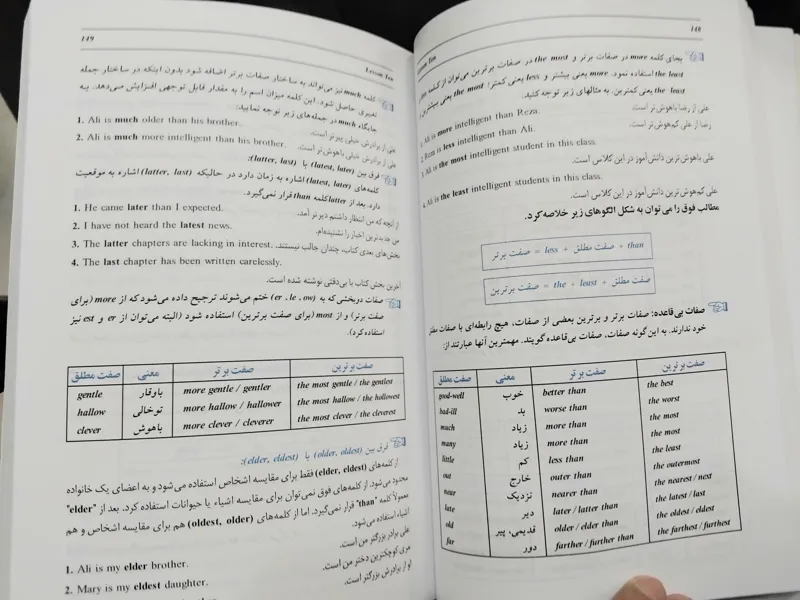 ۱۴۹
Lesson Ten
کلمه much نیز می‌تواند به ساختار صفات برتر اضافه شود بدون اینکه در ساختار جمله
تغییری حاصل شود. این کلمه میزان اسم را به مقدار قابل توجهی افزایش می‌دهد. به
جایگاه much در جمله‌های زیر توجه نمایید:
1. Ali is much older than his brother.
علی از برادرش خیلی پیرتر است.
2. Ali is much more intelligent than his brother.
علی از برادرش خیلی باهوش‌تر است.
فرق بین (latest, later) با (latter, last):
کلمه‌های (latest, later) اشاره به زمان دارد در حالیکه (latter, last) اشاره به موقعیت
دارد. بعد از latter کلمه than قرار نمی‌گیرد.
1. He came later than I expected.
از آنچه که من انتظار داشتم دیرتر آمد.
2. I have not heard the latest news.
من جدیدترین اخبار را نشنیده‌ام.
3. The latter chapters are lacking in interest.
بخش‌های بعدی کتاب، چندان جالب نیستند.
4. The last chapter has been written carelessly.
آخرین بخش کتاب با بی‌دقتی نوشته شده است.
صفات دوبخشی که به (er ، le ، ow) ختم می‌شوند ترجیح داده می‌شود که از more (برای
صفت برتر) و از most (برای صفت برترین) استفاده شود (البته می‌توان از er و est نیز
استفاده کرد).
صفت مطلق معنی صفت برتر صفت برترین
gentle باوقار more gentle / gentler the most gentle / the gentlest
hallow توخالی more hallow / hallower the most hallow / the hallowest
clever باهوش more clever / cleverer the most clever / the cleverest
فرق بین (older, oldest) با (elder, eldest):
از کلمه‌های (elder, eldest) فقط برای مقایسه اشخاص استفاده می‌شود و به اعضای یک خانواده
محدود می‌شود. از کلمه‌های فوق نمی‌توان برای مقایسه اشیاء یا حیوانات استفاده کرد، بعد از "elder"
معمولاً کلمه "than" قرار نمی‌گیرد. اما از کلمه‌های (oldest, older) هم برای مقایسه اشخاص و هم
اشیاء استفاده می‌شود.
1. Ali is my elder brother.
علی برادر بزرگتر من است.
2. Mary is my eldest daughter.
مری کوچکترین دختر من است.
او از برادرش بزرگتر است.
۱۴۸
Lesson Ten
بجای کلمه more در صفات برتر و the most در صفات برترین می‌توان از کلمه
the least استفاده نمود. more یعنی بیشتر و less یعنی کمتر؛ the most یعنی بیشترین
the least یعنی کمترین. به مثالهای زیر توجه کنید.
1. Ali is more intelligent than Reza.
علی از رضا باهوش‌تر است.
2. Reza is less intelligent than Ali.
رضا از علی کم‌هوش‌تر است.
3. Ali is the most intelligent student in this class.
علی باهوش‌ترین دانش‌آموز در این کلاس است.
4. Ali is the least intelligent students in this class.
علی کم‌هوش‌ترین دانش‌آموز در این کلاس است.
مطالب فوق را می‌توان به شکل الگوهای زیر خلاصه کرد.
صفت برتر = less + صفت مطلق + than
صفت برترین = the + least + صفت مطلق
صفات بی‌قاعده: صفات برتر و برترین بعضی از صفات، هیچ رابطه‌ای با صفات مطلق
خود ندارند. به این گونه صفات، صفات بی‌قاعده گویند. مهمترین آنها عبارتند از:
صفت مطلق معنی صفت برتر صفت برترین
good-well خوب better than the best
bad-ill بد worse than the worst
much زیاد more than the most
many زیاد more than the most
little کم less than the least
out خارج outer than the outermost
near نزدیک nearer than the nearest / next
late دیر later / latter than the latest / last
old قدیمی، پیر older / elder than the oldest / eldest
far دور farther / further than the farthest / furthest